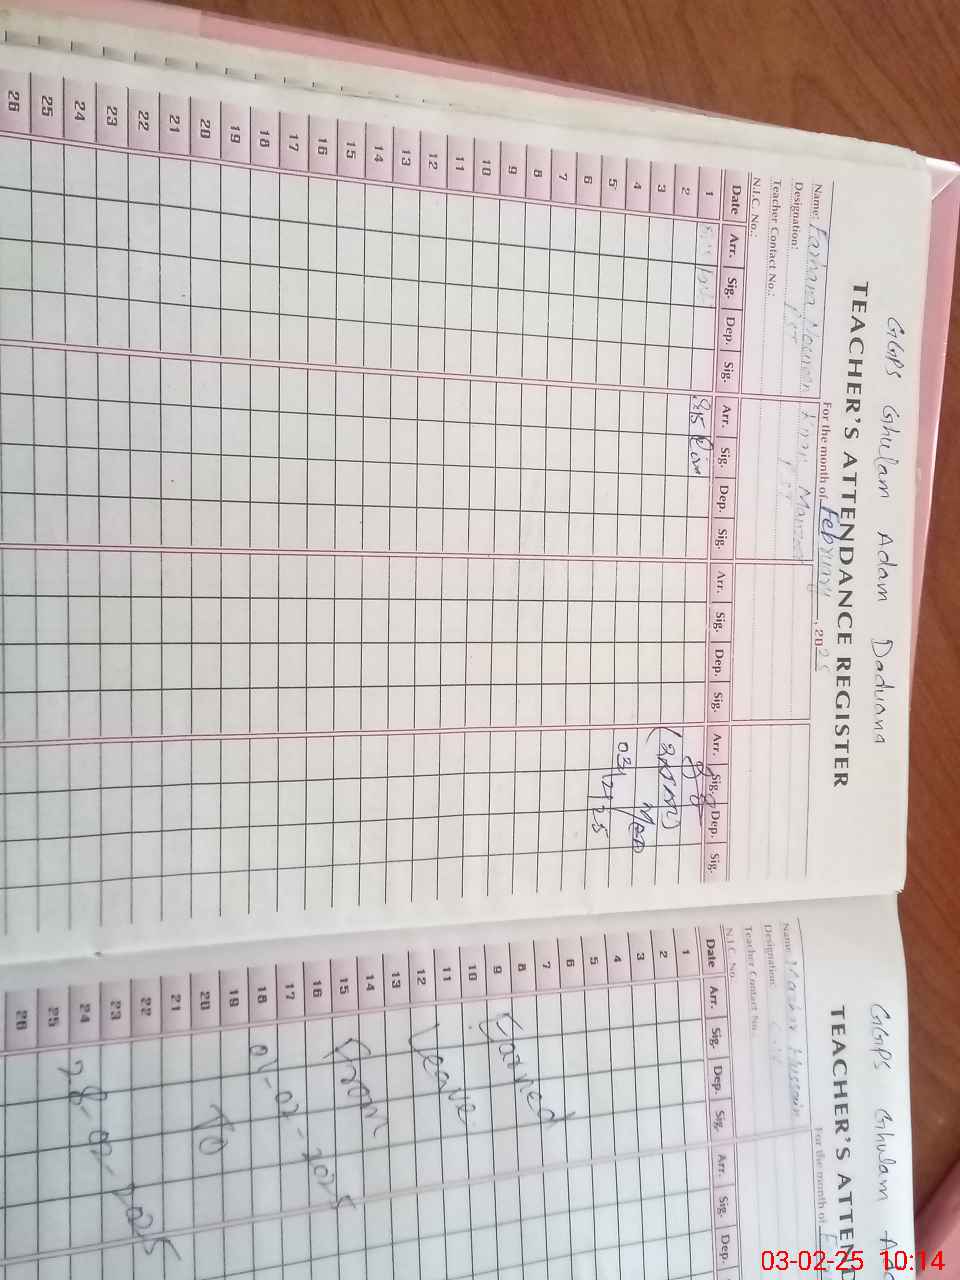 GGPS Ghulam Adam Daduana
TEACHER'S ATTENDANCE REGISTER
For the month of February, 2025
Name:
Designation: PST
Teacher Contact No.:
N.I.C. No.:
Date Arr. Sig. Dep. Sig. Arr. Sig. Dep. Sig. Arr. Sig. Dep. Sig. Arr. Sig. Dep. Sig.
1
2
3
4
5
6
7
8
9
10
11
12
13
14
15
16
17
18
19
20
21
22
23
24
25
26
03/2/25
GGPS Ghulam Ad
TEACHER'S ATTEN
For the month of
Name: Hussain
Designation:
Teacher Contact No.
N.I.C. No.
Date Arr. Sig. Dep. Sig. Arr. Sig. Dep.
1
2
3
4
5
6
7
8
9
10
11
12
13
14
15
16
17
18
19
20
21
22
23
24
25
26
Earned
Leave
From
01-02-2025
To
28-02-2025
03-02-25 10:14